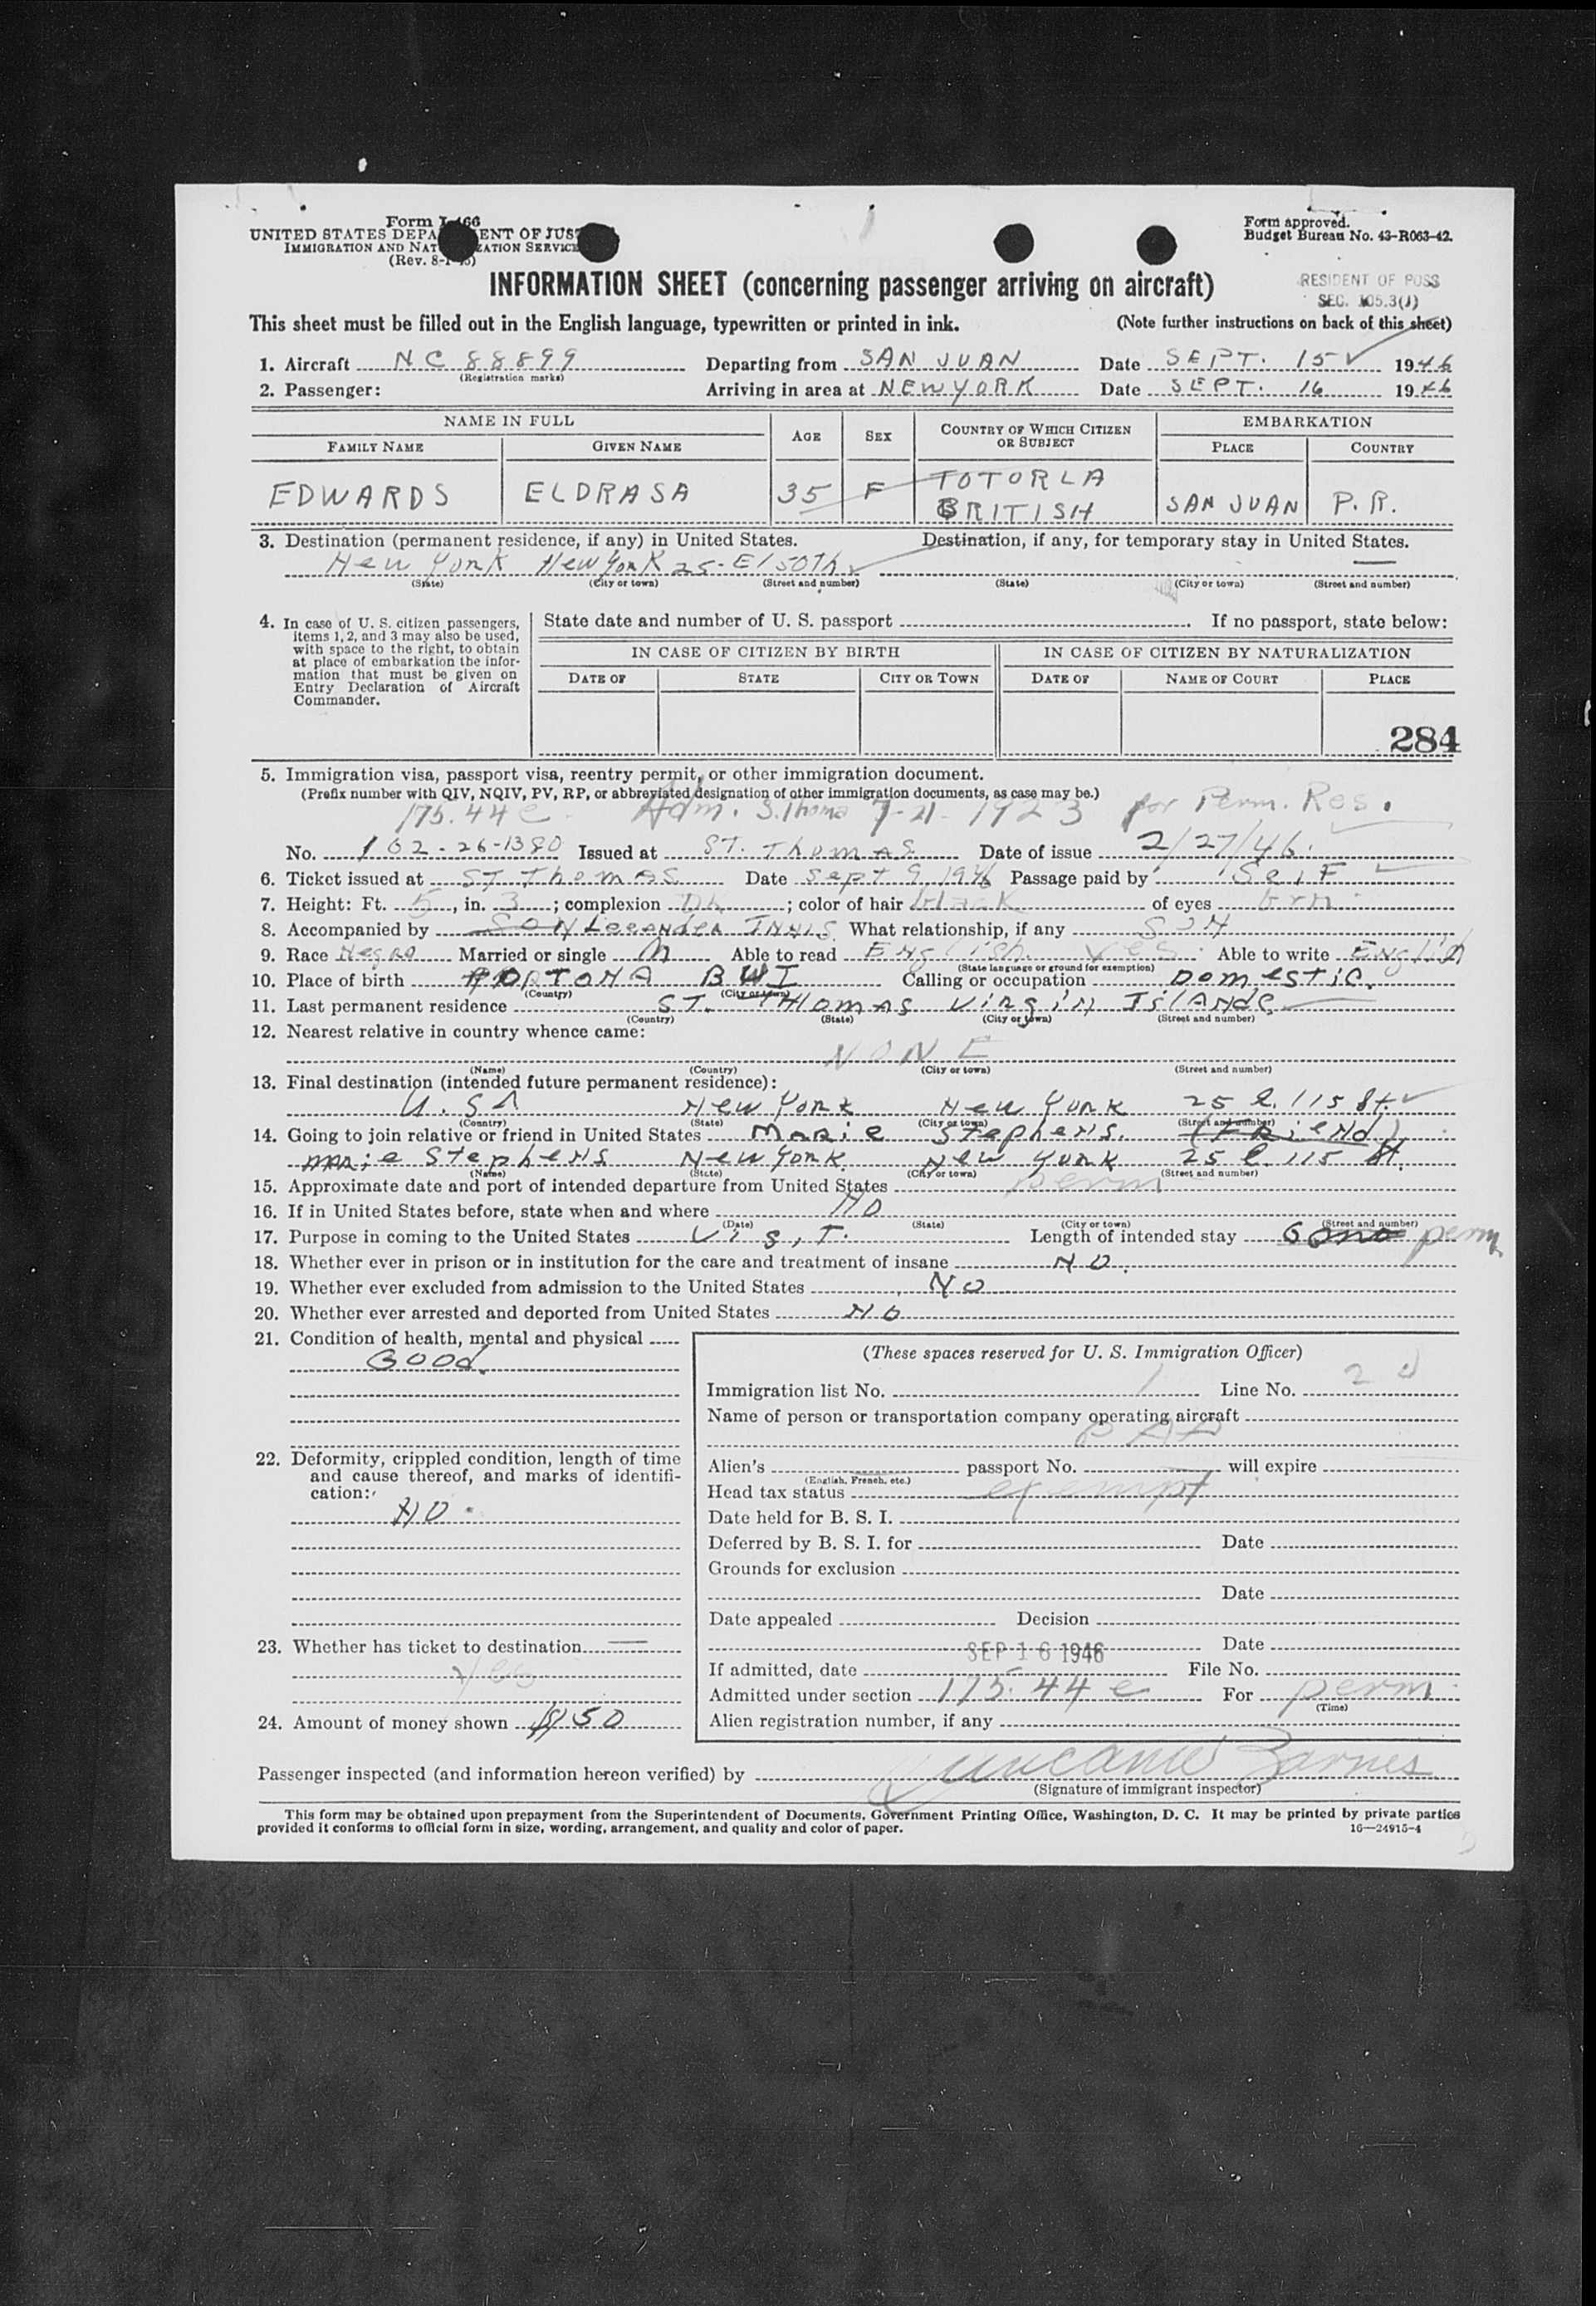 Form I-466
UNITED STATES DEPA ENT OF JUS
IMMIGRATION AND NAT ZATION SERVICE
(Rev. 8-1-45)
Form approved.
Budget Bureau No. 43-R063-42.
INFORMATION SHEET (concerning passenger arriving on aircraft)
RESIDENT OF POSS
SEC. 105.3(J)
This sheet must be filled out in the English language, typewritten or printed in ink. (Note further instructions on back of this sheet)
1. Aircraft NC 88899 Departing from SAN JUAN Date SEPT. 15 1946
(Registration marks)
2. Passenger: Arriving in area at NEW YORK Date SEPT. 16 1946
NAME IN FULL AGE SEX COUNTRY OF WHICH CITIZEN OR SUBJECT EMBARKATION
FAMILY NAME GIVEN NAME PLACE COUNTRY
EDWARDS ELDRASA 35 F TOTORLA BRITISH SAN JUAN P.R.
3. Destination (permanent residence, if any) in United States. Destination, if any, for temporary stay in United States.
New York New York 25-E 150th —
(State) (City or town) (Street and number) (State) (City or town) (Street and number)
4. In case of U. S. citizen passengers, items 1, 2, and 3 may also be used, with space to the right, to obtain at place of embarkation the information that must be given on Entry Declaration of Aircraft Commander.
State date and number of U. S. passport . If no passport, state below:
IN CASE OF CITIZEN BY BIRTH IN CASE OF CITIZEN BY NATURALIZATION
DATE OF STATE CITY OR TOWN DATE OF NAME OF COURT PLACE
284
5. Immigration visa, passport visa, reentry permit, or other immigration document.
(Prefix number with QIV, NQIV, PV, RP, or abbreviated designation of other immigration documents, as case may be.)
175.44e Adm. S. Thomas 7-21-1923 for Perm. Res.
No. 162-26-1380 Issued at ST. Thomas Date of issue 2/27/46.
6. Ticket issued at ST Thomas Date Sept 9 1946 Passage paid by Self
7. Height: Ft. 5, in. 3; complexion DK; color of hair black of eyes brn
8. Accompanied by SON Leeander INNIS What relationship, if any SON
9. Race Negro Married or single M Able to read English Yes Able to write English
(State language or ground for exemption)
10. Place of birth TORTOMA BWI Calling or occupation Domestic.
(Country) (City or town)
11. Last permanent residence ST. THOMAS Virgin Islands
(Country) (State) (City or town) (Street and number)
12. Nearest relative in country whence came:
NONE
(Name) (Country) (City or town) (Street and number)
13. Final destination (intended future permanent residence):
U.SA New York New York 25 E. 115 St.
(Country) (State) (City or town) (Street and number)
14. Going to join relative or friend in United States Marie Stephens. (FRiENd)
Marie Stephens New York New York 25 E. 115 St.
(Name) (State) (City or town) (Street and number)
15. Approximate date and port of intended departure from United States perm
16. If in United States before, state when and where NO
(Date) (State) (City or town) (Street and number)
17. Purpose in coming to the United States Visit. Length of intended stay 6 mo perm
18. Whether ever in prison or in institution for the care and treatment of insane NO.
19. Whether ever excluded from admission to the United States NO
20. Whether ever arrested and deported from United States NO
21. Condition of health, mental and physical
Good
22. Deformity, crippled condition, length of time and cause thereof, and marks of identification:
NO.
23. Whether has ticket to destination —
Yes
24. Amount of money shown $150
(These spaces reserved for U. S. Immigration Officer)
Immigration list No. 1 Line No. 2
Name of person or transportation company operating aircraft
PAA
Alien's passport No. will expire
(English, French, etc.)
Head tax status exempt
Date held for B. S. I.
Deferred by B. S. I. for Date
Grounds for exclusion
Date
Date appealed Decision
Date
SEP 16 1946
If admitted, date File No.
Admitted under section 175.44e For perm
(Time)
Alien registration number, if any
Passenger inspected (and information hereon verified) by Barnes
(Signature of immigrant inspector)
This form may be obtained upon prepayment from the Superintendent of Documents, Government Printing Office, Washington, D. C. It may be printed by private parties
provided it conforms to official form in size, wording, arrangement, and quality and color of paper. 16—24915-4